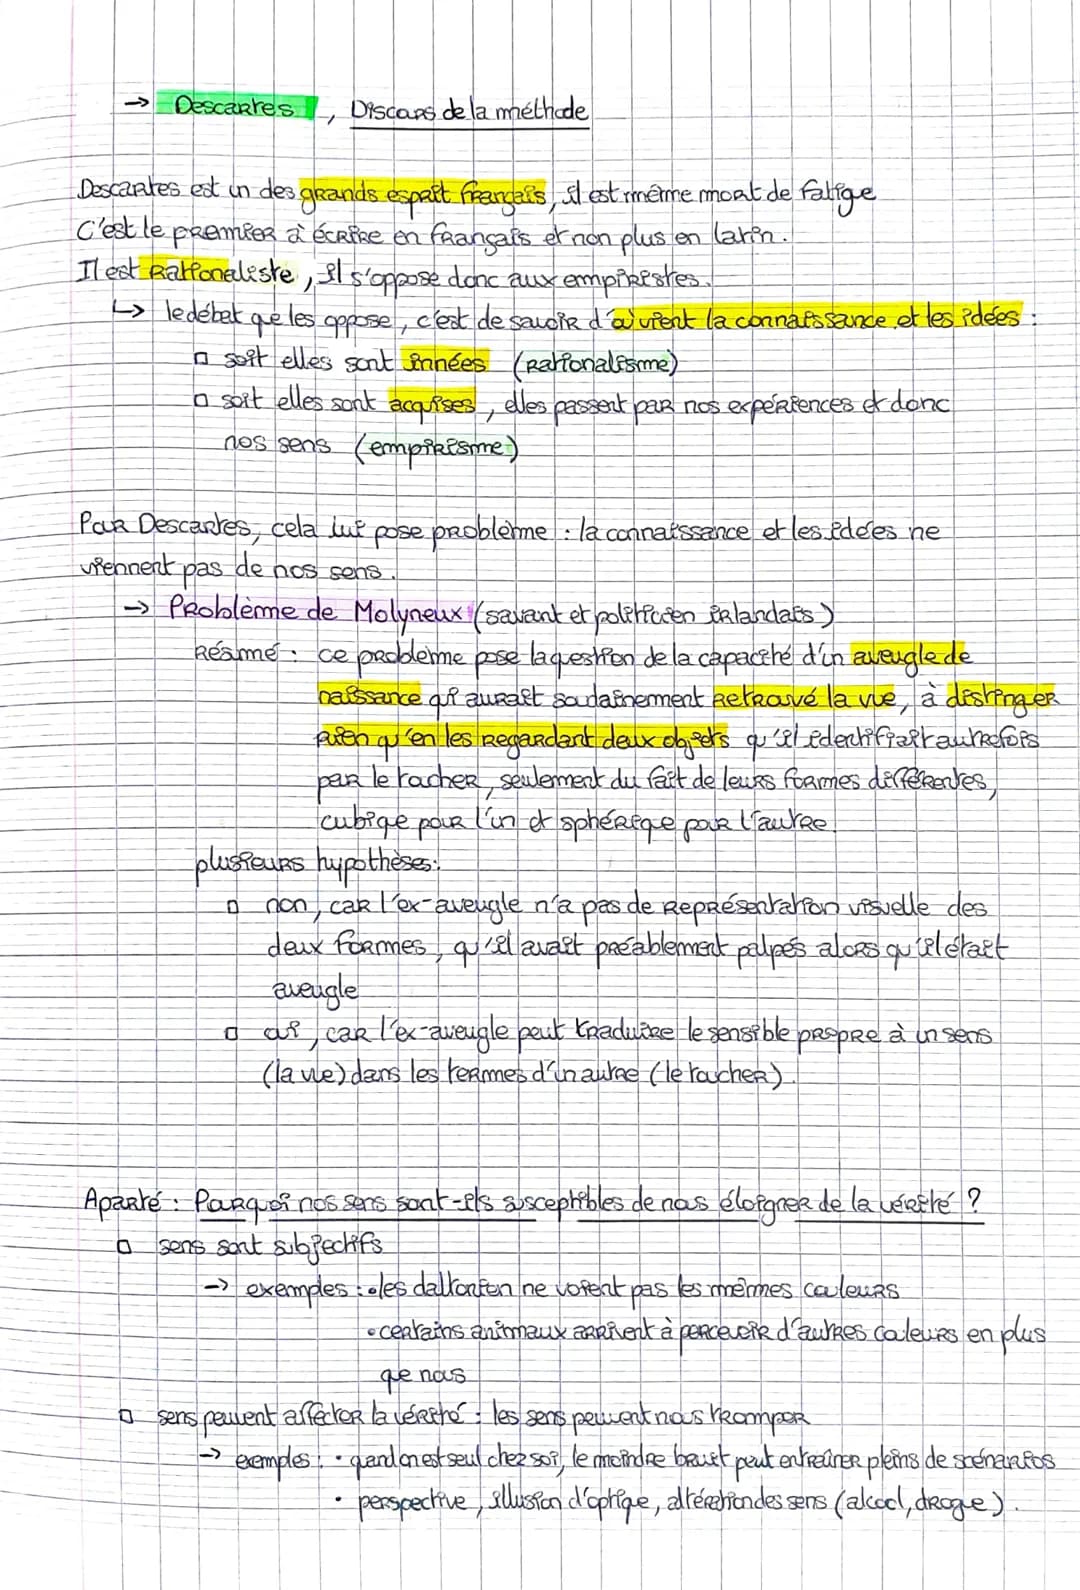 → Descartes, Discours de la méthode
Descartes est un des grands esprit français, il est même mort de fatigue
C'est le premier à écrire en français et non plus en latin.
Il est Rationaliste, il s'oppose donc aux empiristes.
↳ le débat que les oppose, c'est de savoir d'où vient la connaissance et les idées :
▫ soit elles sont innées (Rationalisme)
▫ soit elles sont acquises, elles passent par nos expériences et donc
nos sens (empirisme)
Pour Descartes, cela lui pose problème : la connaissance et les idées ne
viennent pas de nos sens.
→ Problème de Molyneux (savant et politicien irlandais)
Résumé : ce problème pose la question de la capacité d'un aveugle de
naissance qui aurait soudainement retrouvé la vue, à distinguer
rien qu'en les regardant deux objets qu'il identifiait autrefois
par le toucher, seulement du fait de leurs formes différentes,
cubique pour l'un et sphérique pour l'autre.
plusieurs hypothèses :
▫ non, car l'ex-aveugle n'a pas de représentation visuelle des
deux formes, qu'il avait préablement palpés alors qu'il était
aveugle
▫ oui, car l'ex-aveugle peut traduire le sensible propre à un sens
(la vue) dans les termes d'un autre (le toucher).
Aparté : Pourquoi nos sens sont-ils susceptibles de nous éloigner de la vérité ?
▫ sens sont subjectifs
→ exemples : • les daltonien ne voient pas les mêmes couleurs
• certains animaux arrivent à percevoir d'autres couleurs en plus
que nous
▫ sens peuvent affecter la vérité : les sens peuvent nous tromper
→ exemples : • quand on est seul chez soi, le moindre bruit peut entraîner pleins de scénarios
• perspective, illusion d'optique, altération des sens (alcool, drogue).